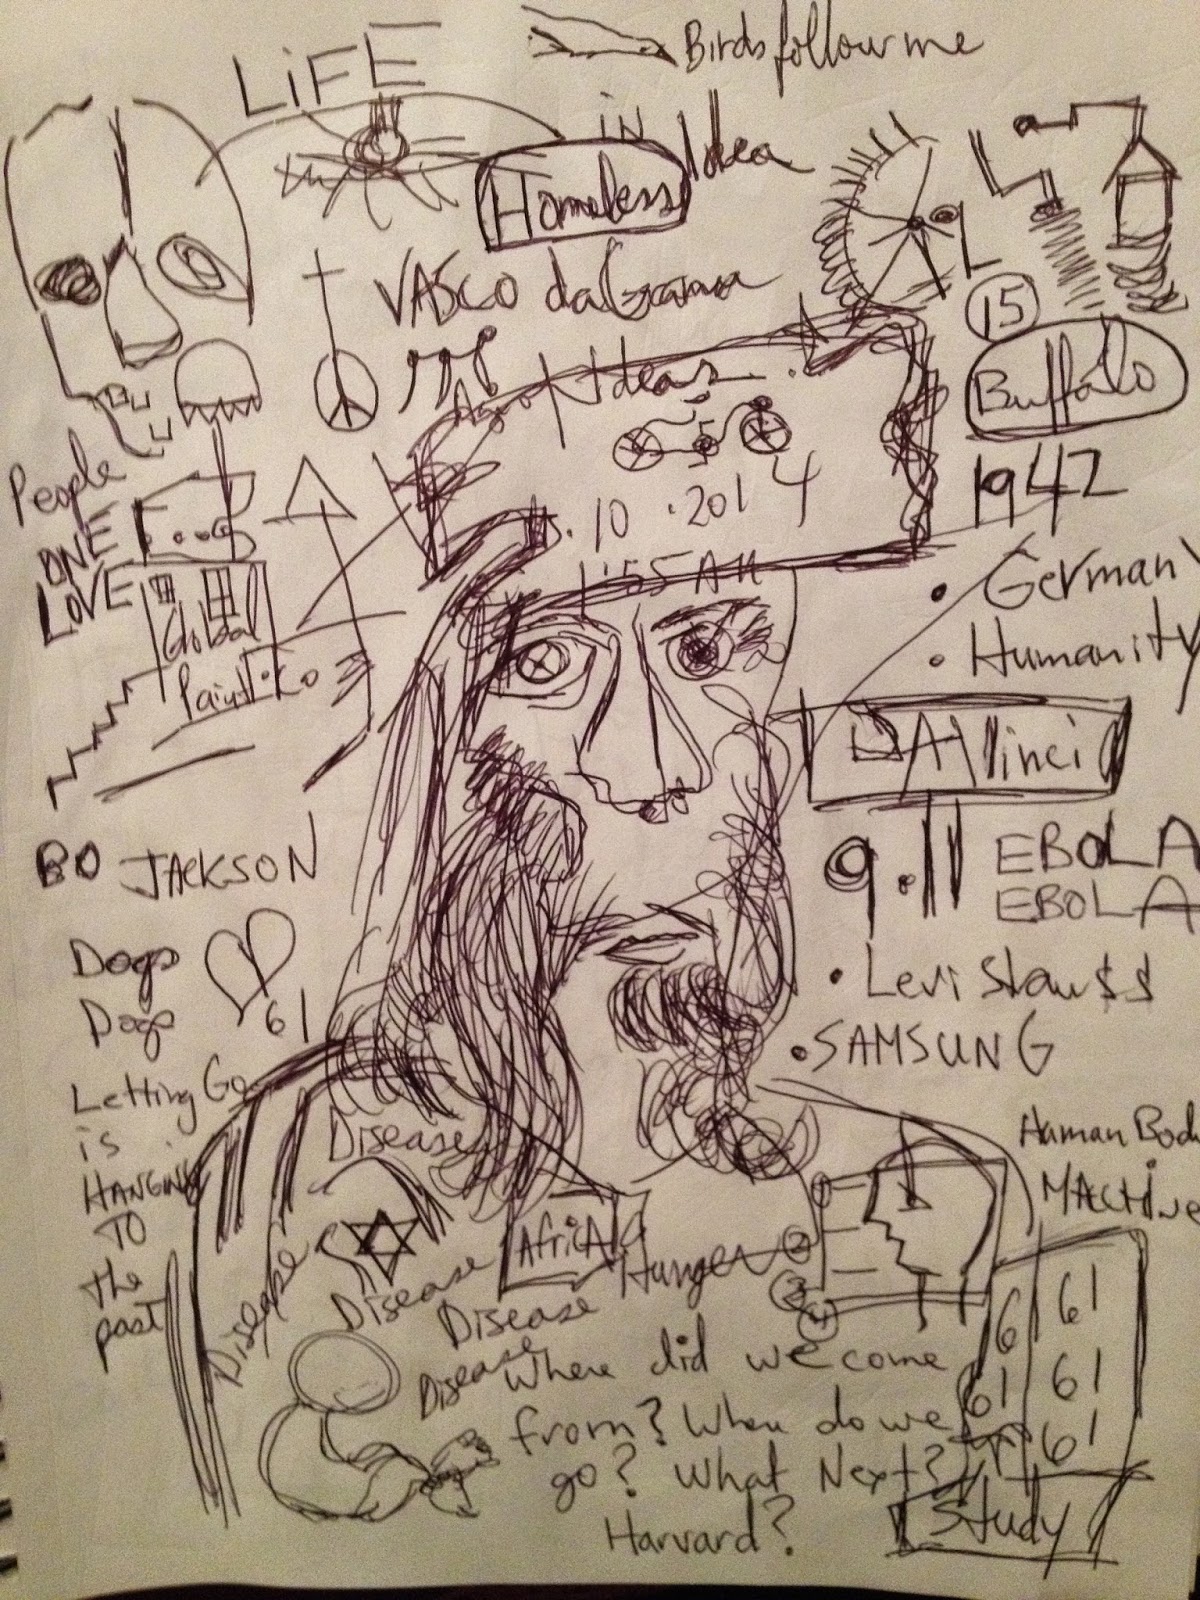 LiFE
Birds follow me
iN
Homeless Idea
VASCO daGrama
15
Buffalo
1942
Ideas
.10 .2014
1:55 AM
People
ONE
LOVE
Global
• Germany
• Humanity
DAVinci
9.11 EBOLA
EBOLA
• Levi Stau$$
• SAMSUNG
BO JACKSON
Dogs
Dogs
61
Letting Go
is
HANGING
TO
the
past
Disease
Disease
Disease
Disease
Disease
AfricA
Hunger
2
3
4
Human Body
MACHine
6 61
61 61
61
Where did we come
from? Where do we
go? What Next?
Harvard?
Study